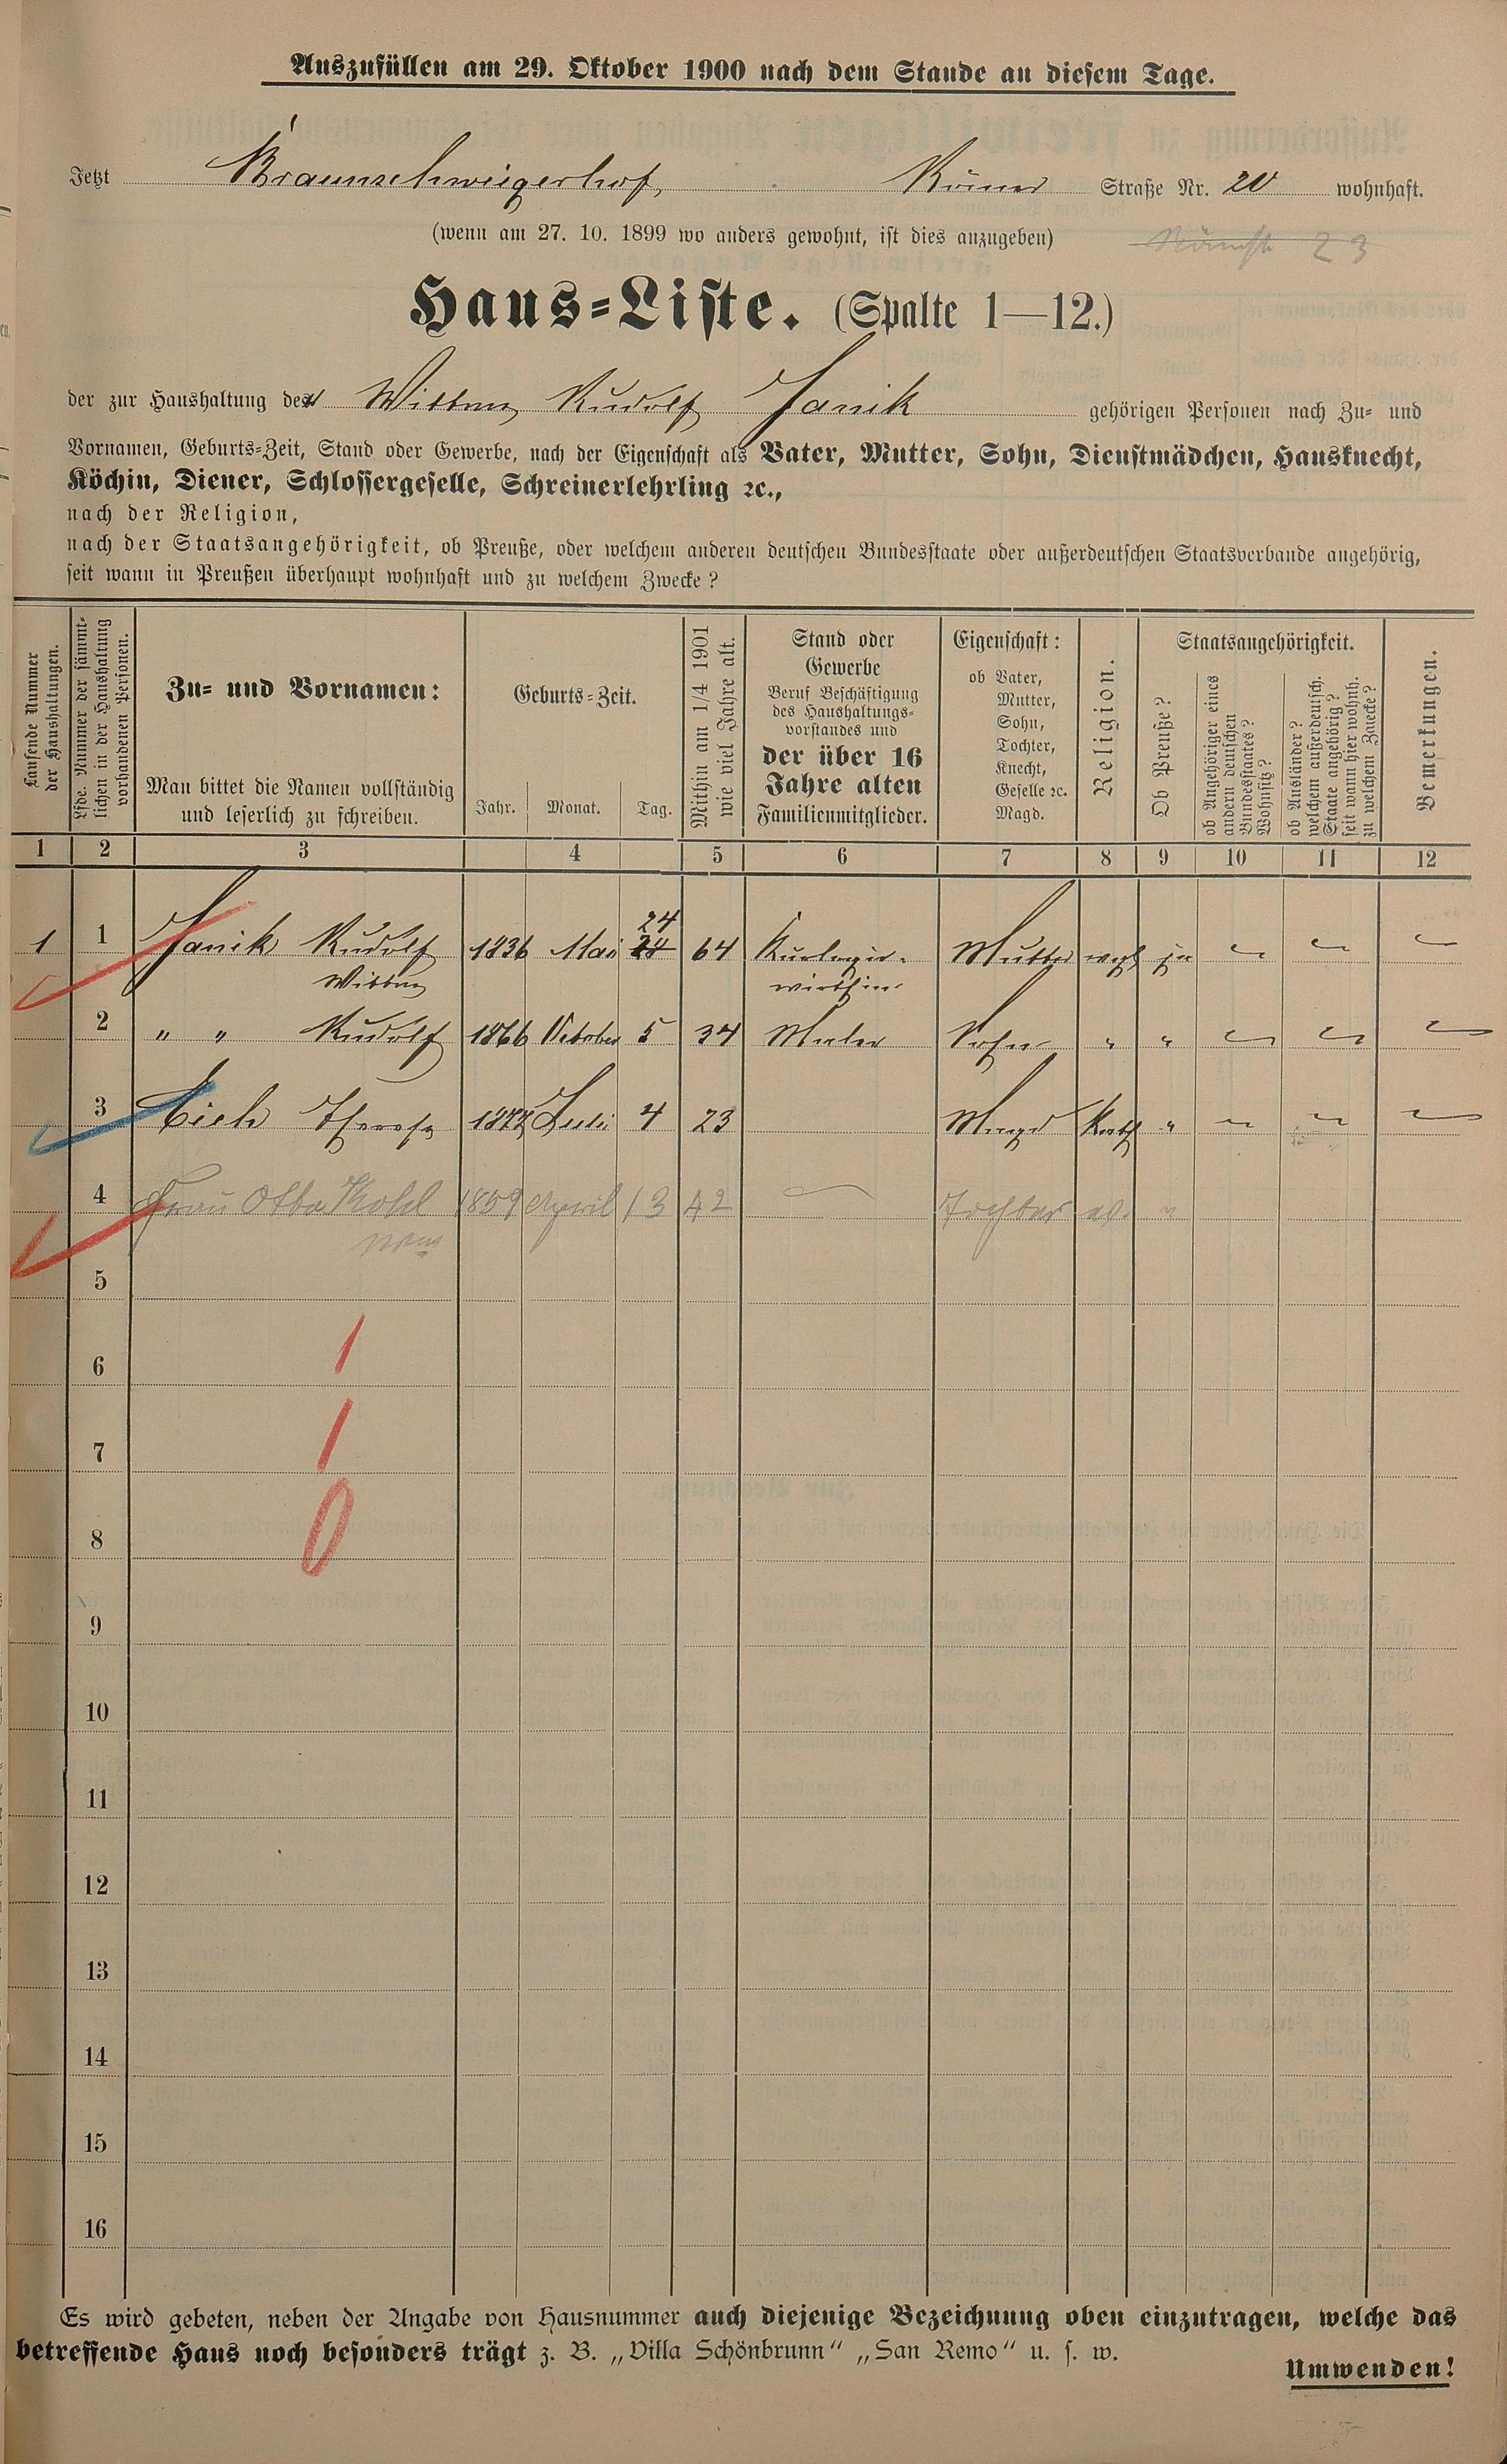 Auszufüllen am 29. Oktober 1900 nach dem Stande an diesem Tage.
Jetzt Braunschweigerhof, Römer Straße Nr. 20 wohnhaft.
(wenn am 27. 10. 1899 wo anders gewohnt, ist dies anzugeben) 23
Haus-Liste. (Spalte 1—12.)
der zur Haushaltung der Wittwe Rudolf Janik gehörigen Personen nach Zu- und
Vornamen, Geburts-Zeit, Stand oder Gewerbe, nach der Eigenschaft als Vater, Mutter, Sohn, Dienstmädchen, Hausknecht,
Köchin, Diener, Schlossergeselle, Schreinerlehrling ꝛc.,
nach der Religion,
nach der Staatsangehörigkeit, ob Preuße, oder welchem anderen deutschen Bundesstaate oder außerdeutschen Staatsverbande angehörig,
seit wann in Preußen überhaupt wohnhaft und zu welchem Zwecke?
Laufende Nummer der Haushaltungen.
Lfde. Nummer der sämmtlichen in der Haushaltung vorhandenen Personen.
Zu- und Vornamen:
Man bittet die Namen vollständig
und leserlich zu schreiben.
Geburts-Zeit.
Jahr. Monat. Tag.
Mithin am 1/4 1901 wie viel Jahre alt.
Stand oder
Gewerbe
Beruf Beschäftigung
des Haushaltungs-
vorstandes und
der über 16
Jahre alten
Familienmitglieder.
Eigenschaft:
ob Vater,
Mutter,
Sohn,
Tochter,
Knecht,
Geselle ꝛc.
Magd.
Religion.
Staatsangehörigkeit.
Ob Preuße?
ob Angehöriger eines andern deutschen Bundesstaates? Wohnsitz?
ob Ausländer? welchem außerdeutsch. Staate angehörig? seit wann hier wohnh. zu welchem Zwecke?
Bemerkungen.
1 2 3 4 5 6 7 8 9 10 11 12
24
1 1 Janik Rudolf 1836 Mai 24 64 Kurlogir- Mutter evgl ja
Wittwe wirthin
2 " " Rudolf 1866 October 5 34 Maler Sohn " "
3 Eich Therese 1877 Juli 4 23 Magd Kath "
4 Frau Otto Kohl 1859 April 13 42 Tochter ev. "
5
1
6
1
7
0
8
9
10
11
12
13
14
15
16
Es wird gebeten, neben der Angabe von Hausnummer auch diejenige Bezeichnung oben einzutragen, welche das
betreffende Haus noch besonders trägt z. B. „Villa Schönbrunn" „San Remo" u. s. w.
Umwenden!